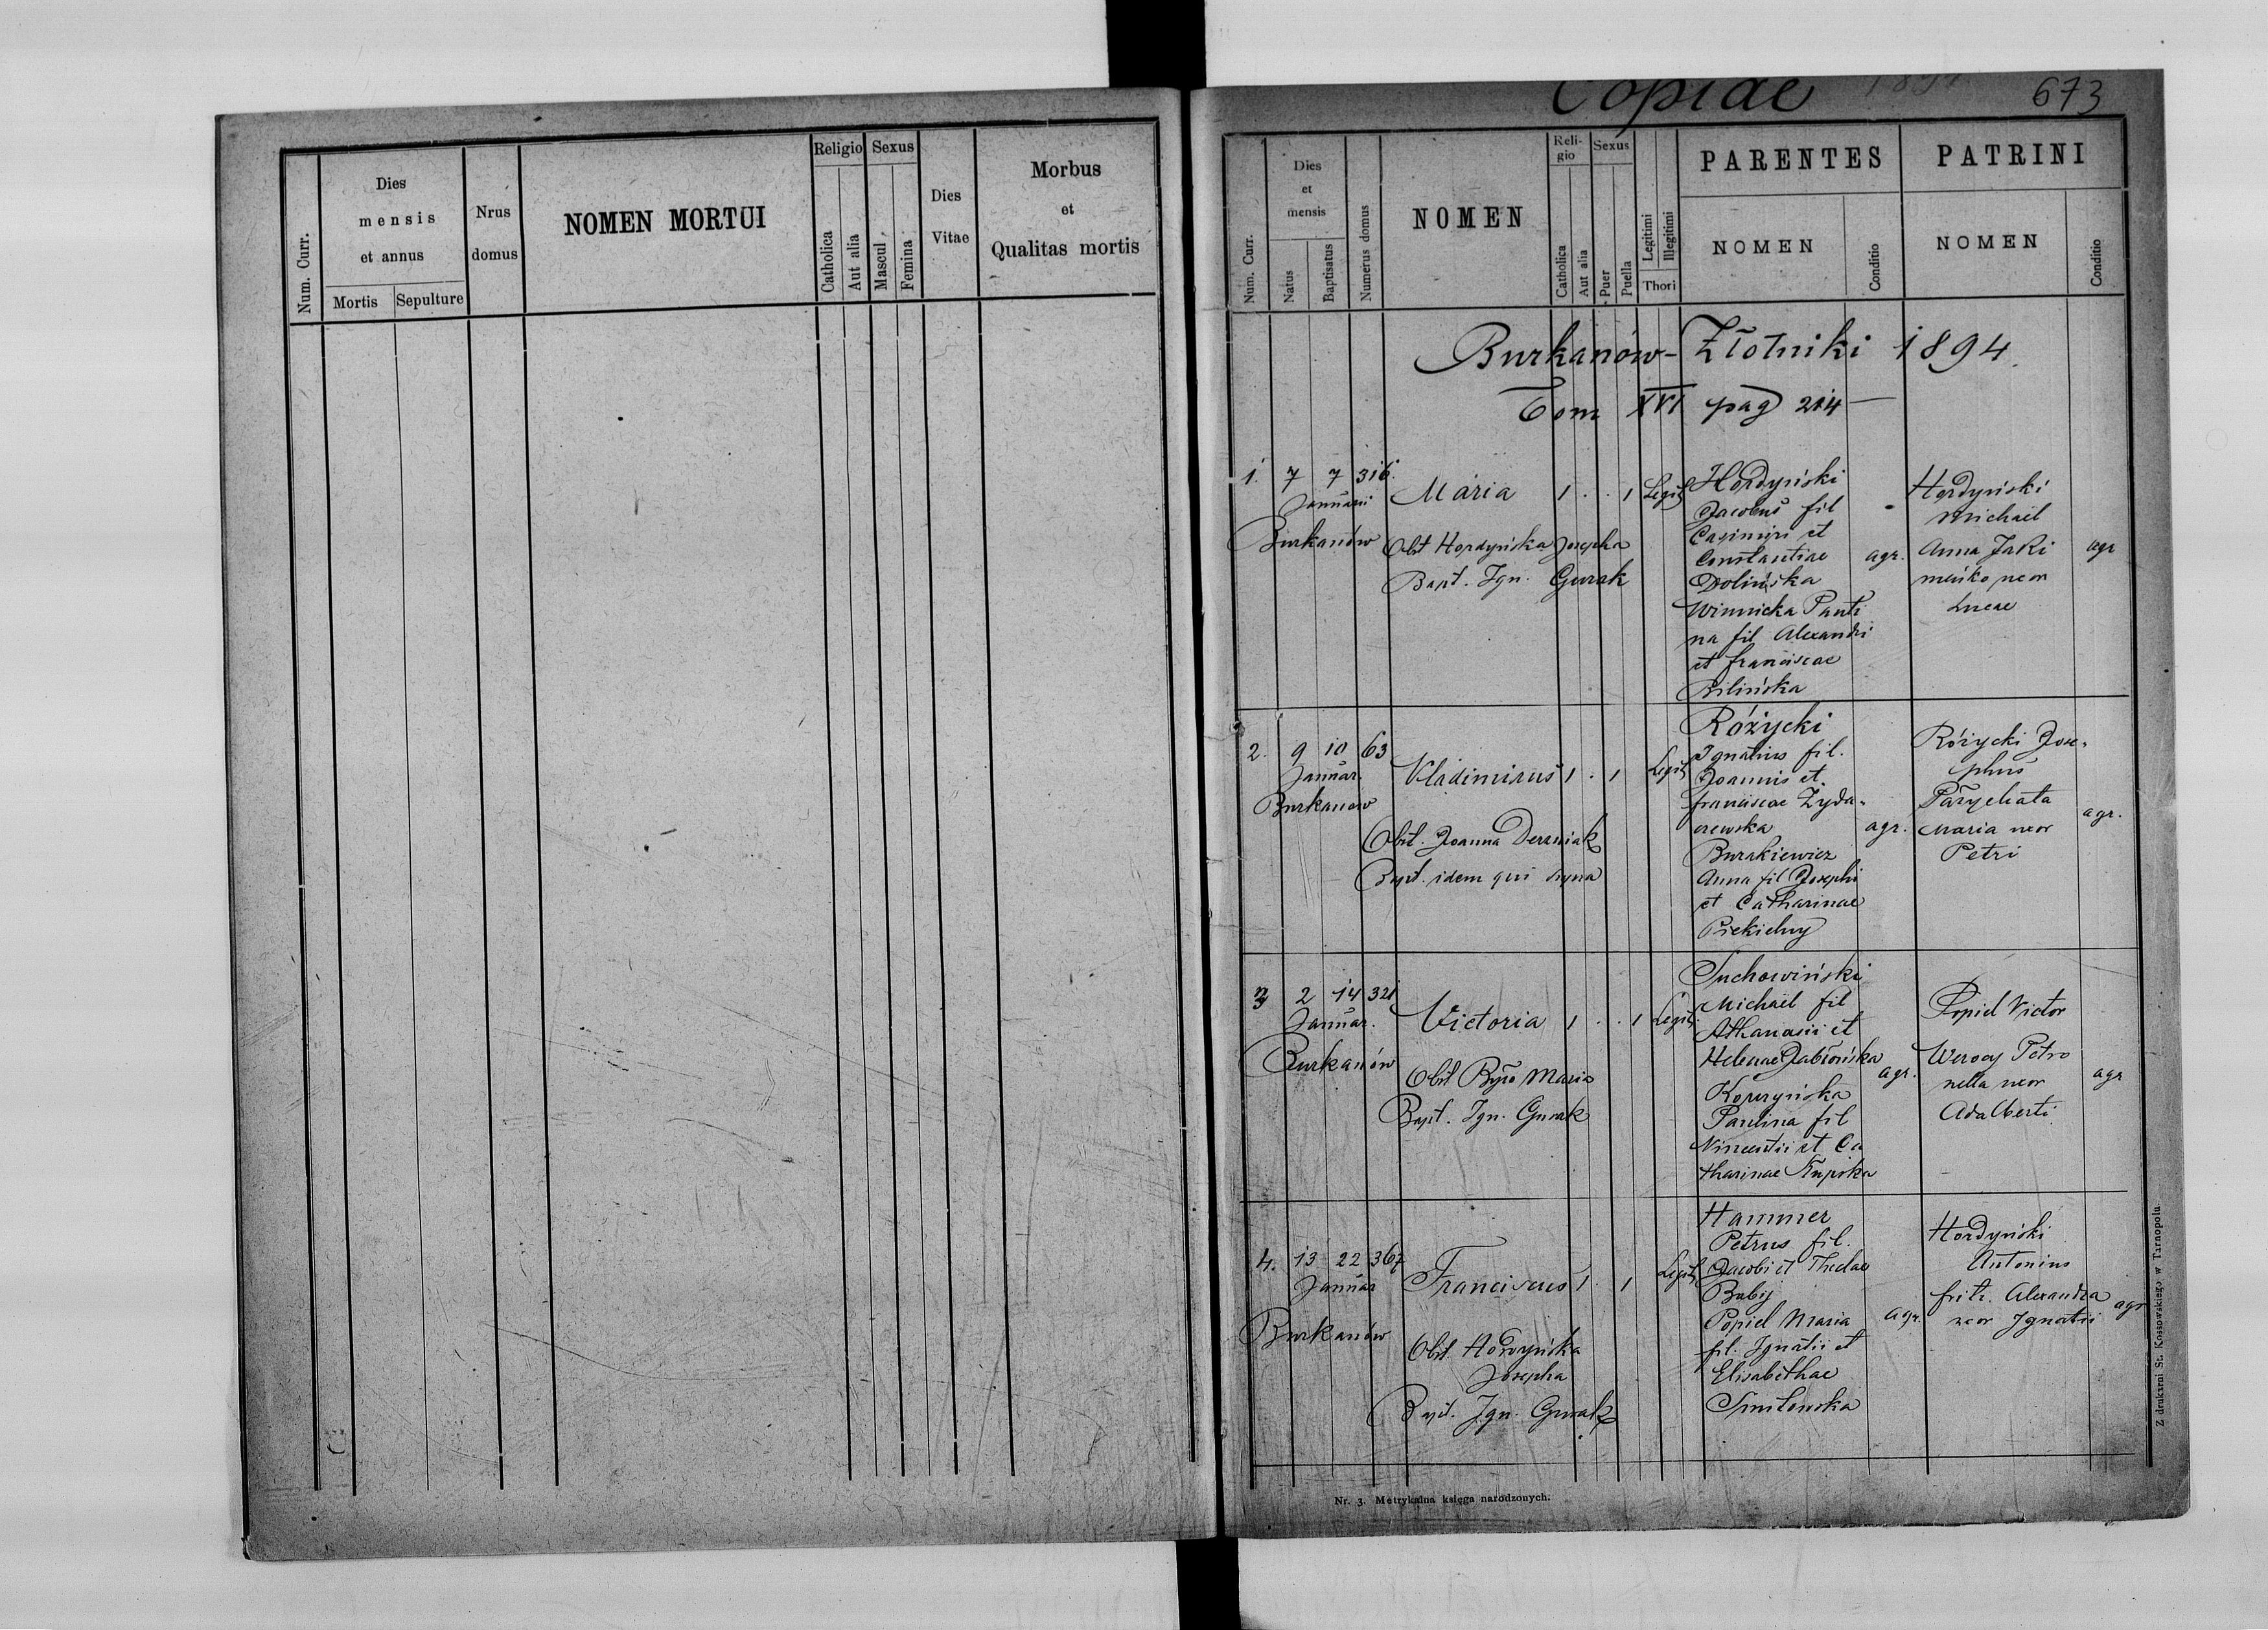 Num. Curr.
Dies
mensis
et annus
Mortis Sepulture
Nrus
domus
NOMEN MORTUI
Religio
Catholica
Aut alia
Sexus
Mascul
Femina
Dies
Vitae
Morbus
et
Qualitas mortis
Copiae 673
Num. Curr.
Dies
et
mensis
Natus
Baptisatus
Numerus domus
NOMEN
Reli-
gio
Catholica
Aut alia
Sexus
Puer
Puella
Legitimi
Illegitimi
Thori
PARENTES
NOMEN
Conditio
PATRINI
NOMEN
Conditio
Burkanów-Złotniki 1894.
Tom XVI pag 214
1. 7 7 316.
Januarii
Burkanów
Maria 1 . . 1 Legit
Obst Hordyńska Josepha
Bapt. Ign. Gurak
Hordyński
Jacobus fil
Casimiri et
Constantiae
Dolińska
Winnicka Pauli
na fil Alexandri
et Franciscae
Bilińska
agr.
Hordyński
Michael
Anna Jaki
meńko uxor
Lucae
agr
2. 9 10 63
Januar.
Burkanow
Vladimirus 1 . 1 Legit
Obst. Joanna Derzniak
Bapt. idem qui supra
Różycki
Ignatius fil.
Joannis et
Franciscae Żyda-
czewska
Burakiewicz
Anna fil Josephi
et Catharinae
Piekielny
agr.
Różycki Jose-
phus
Parychata
Maria uxor
Petri
agr.
3 2 14 321
Januar.
Burkanów
Victoria 1 . . 1 Legit
Obst Byś Maria
Bapt. Ign. Gurak
Suchowiński
Michael fil
Athanasii et
Helenae Jabłońska
Korczyńska
Paulina fil
Vincentii et Ca
tharinae Krupska
agr.
Popiel Victor
Petro
nella uxor
Adalberti
agr
4. 13 22 367
Januar
Burkanów
Franciscus 1 . 1 Legit
Obst Hordyńska
Josepha
Bapt. Ign. Gurak
Hammer
Petrus fil.
Jacobi et Theclae
Babij
Popiel Maria
fil. Ignatii et
Elisabethae
agr.
Hordyński
Antonius
Alexandra
uxor Ignatii
agr
Nr. 3. Metrykalna księga narodzonych.
Z drukarni St. Kossowskiego w Tarnopolu.